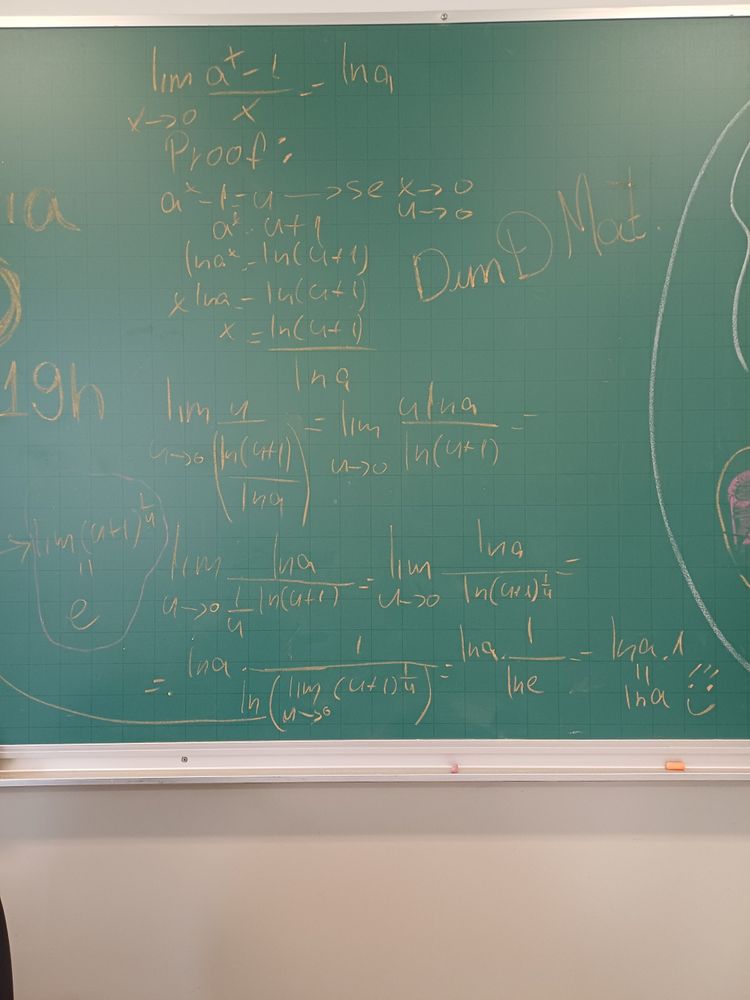 lim a^x - 1 / x = ln a
x→0
Proof:
a^x - 1 = u → se x→0
u→0
a^x = u+1
ln a^x = ln(u+1)
x ln a = ln(u+1)
x = ln(u+1) / ln a
Mat.
ia
19h
lim u→0 u / (ln(u+1) / ln a) = lim u→0 u ln a / ln(u+1) =
→ lim (u+1)^1/u = e
lim u→0 ln a / 1/u ln(u+1) = lim u→0 ln a / ln(u+1)^1/u =
= ln a · 1 / ln(lim u→0 (u+1)^1/u) = ln a · 1 / ln e = ln a · 1 = ln a